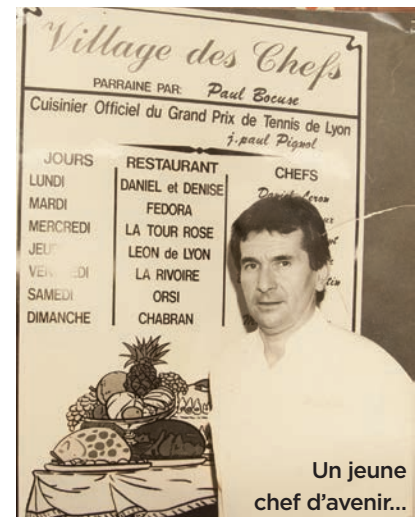 Village des Chefs
PARRAINE PAR: Paul Bocuse
Cuisinier Officiel du Grand Prix de Tennis de Lyon
j. paul Pignol
JOURS RESTAURANT CHEFS
LUNDI DANIEL et DENISE
MARDI FEDORA
MERCREDI LA TOUR ROSE
LEON de LYON
LA RIVOIRE
SAMEDI ORSI
DIMANCHE CHABRAN
Un jeune
chef d'avenir...